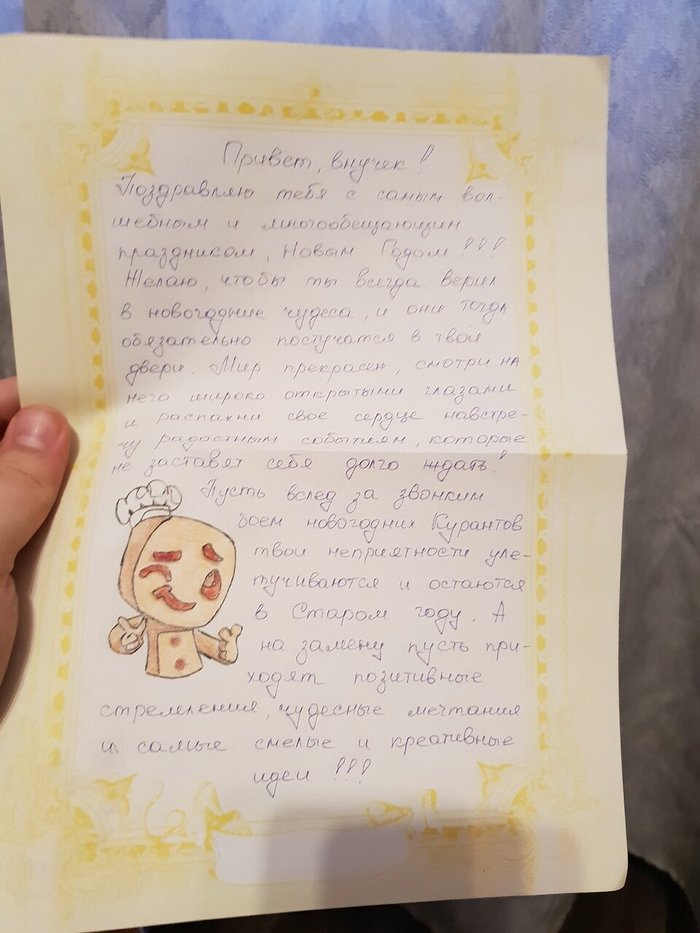 Привет, внучек!
Поздравляю тебя с самым вол-
шебным и многообещающим
праздником, Новым Годом!!!
Желаю, чтобы ты всегда верил
в новогодние чудеса, и они тогда
обязательно постучатся в твои
двери. Мир прекрасен, смотри на
него широко открытыми глазами
и распахни свое сердце навстре-
чу радостным событиям, которые
не заставят себя долго ждать!
Пусть вслед за звонким
боем новогодних Курантов
твои неприятности уле-
тучиваются и остаются
в Старом году. А
на замену пусть при-
ходят позитивные
стремления, чудесные мечтания
и самые смелые и креативные
идеи!!!